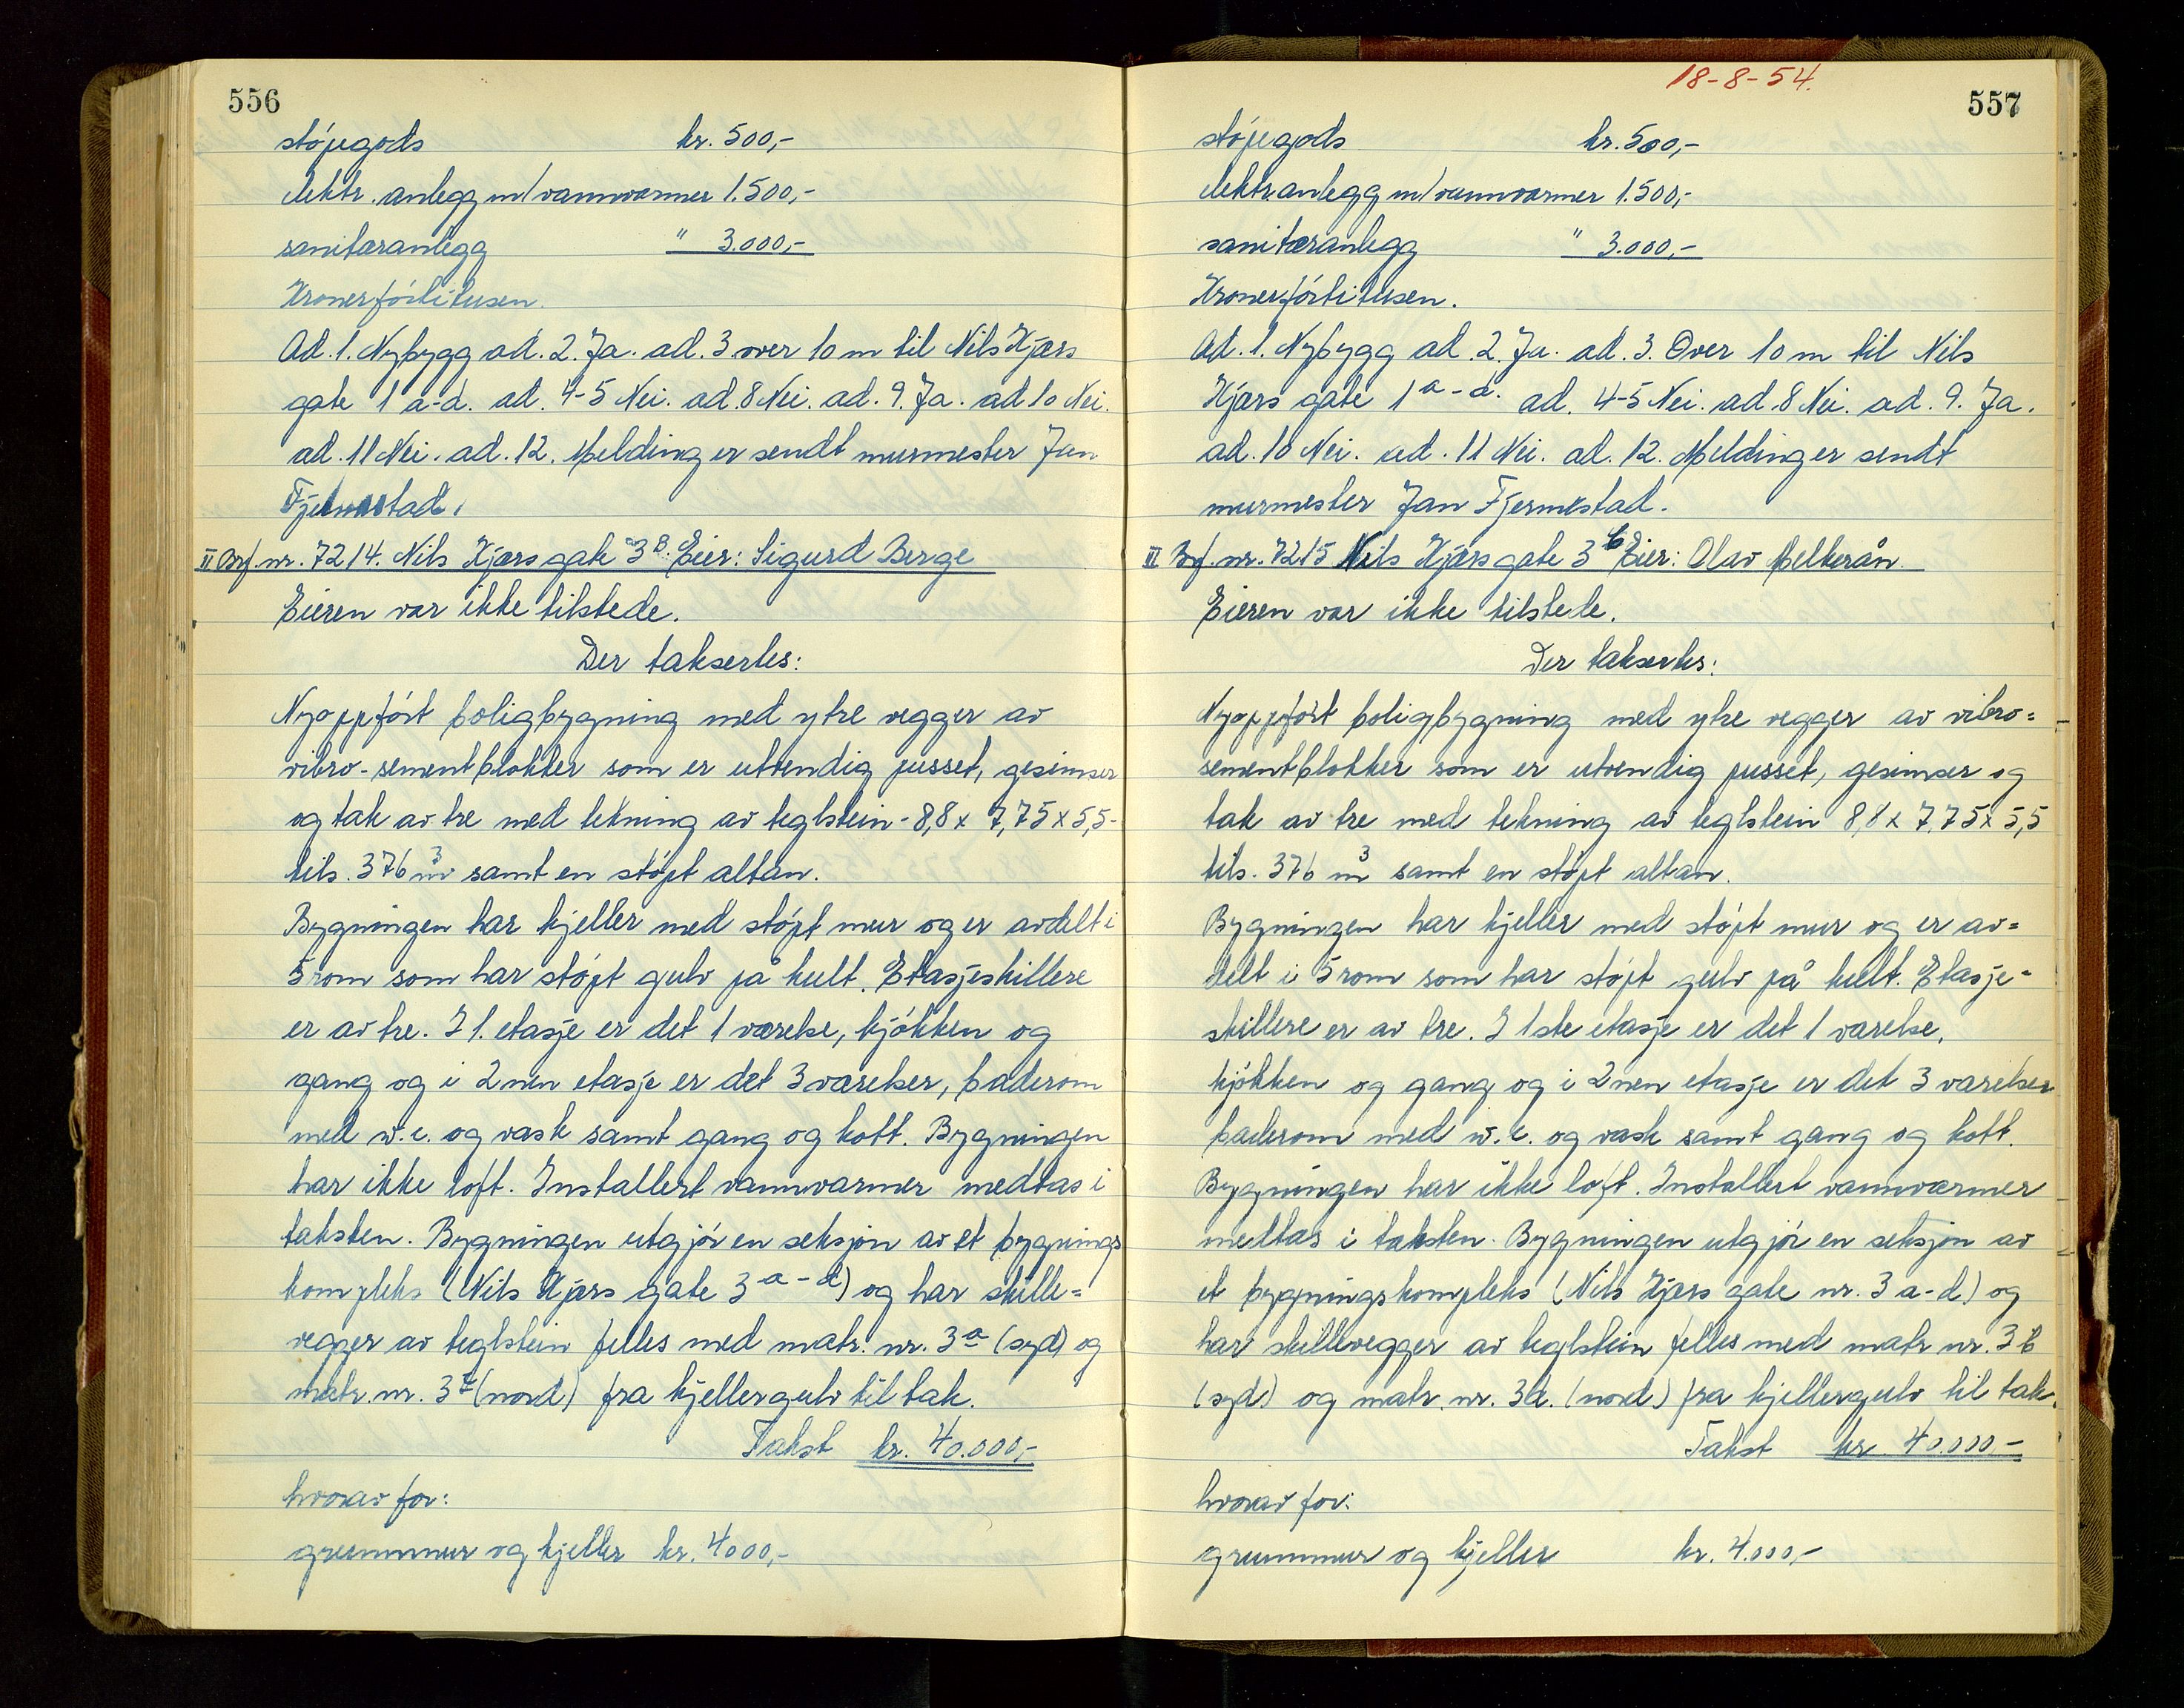 556
støpegods kr. 500,-
elektr. anlegg m/vannvarmer 1.500,-
sanitæranlegg " 3.000,-
Kronerførtitusen.
Ad. 1. Nybygg ad. 2. Ja. ad. 3 over 10 m til Nils Kjærs
gate 1 a-d. ad. 4-5 Nei. ad. 8 Nei. ad. 9. Ja. ad 10 Nei.
ad. 11 Nei. ad. 12. Melding er sendt murmester Jan
Fjermestad.
II Brf. nr. 7214. Nils Kjærs gate 3B. Eier: Sigurd Berge
Eieren var ikke tilstede.
Der taksertes:
Nyoppført boligbygning med ytre vegger av
vibro-sementblokker som er utvendig pusset, gesimser
og tak av tre med tekning av teglstein - 8,8 x 7,75 x 5,5 -
tils. 376 m3 samt en støpt altan.
Bygningen har kjeller med støpt mur og er avdelt i
5 rom som har støpt gulv på kult. Etasjeskillere
er av tre. I 1. etasje er det 1 værelse, kjøkken og
gang og i 2nen etasje er det 3 værelser, baderom
med w.c. og vask samt gang og kott. Bygningen
har ikke loft. Installert vannvarmer medtas i
taksten. Bygningen utgjør en seksjon av et bygnings
kompleks (Nils Kjærs gate 3 a-d) og har skille=
vegger av teglstein felles med matr. nr. 3a (syd) og
matr. nr. 3c (nord) fra kjellergulv til tak.
Takst kr. 40.000,-
hvorav for:
grunnmur og kjeller kr. 4000,-
18-8-54.
557
støpegods kr. 500,-
elektr.anlegg m/vannvarmer 1.500,-
sanitæranlegg " 3.000,-
Kronerførtitusen.
Ad. 1. Nybygg ad. 2. Ja. ad. 3. Over 10 m til Nils
Kjærs gate 1 a-d. ad. 4-5 Nei. ad 8 Nei. ad. 9. Ja.
ad. 10 Nei. ad. 11 Nei. ad. 12. Melding er sendt
murmester Jan Fjermestad.
III Brf. nr. 7215 Nils Kjærs gate 3c Eier: Olav Melkerån
Eieren var ikke tilstede.
Der taksertes:
Nyoppført boligbygning med ytre vegger av vibro=
sementblokker som er utvendig pusset, gesimser og
tak av tre med tekning av teglstein 8,8 x 7,75 x 5,5
tils. 376 m3 samt en støpt altan.
Bygningen har kjeller med støpt mur og er av=
delt i 5 rom som har støpt gulv på kult. Etasje=
skillere er av tre. I 1ste etasje er det 1 værelse,
kjøkken og gang og i 2nen etasje er det 3 værelser
baderom med w.c. og vask samt gang og kott.
Bygningen har ikke loft. Installert vannvarmer
medtas i taksten. Bygningen utgjør en seksjon av
et bygningskompleks (Nils Kjærs gate nr. 3 a-d) og
har skillevegger av teglstein felles med matr nr. 3 b
(syd) og matr. nr. 3d. (nord) fra kjellergulv til tak.
Takst kr 40.000-
hvorav for:
grunnmur og kjeller kr. 4.000,-